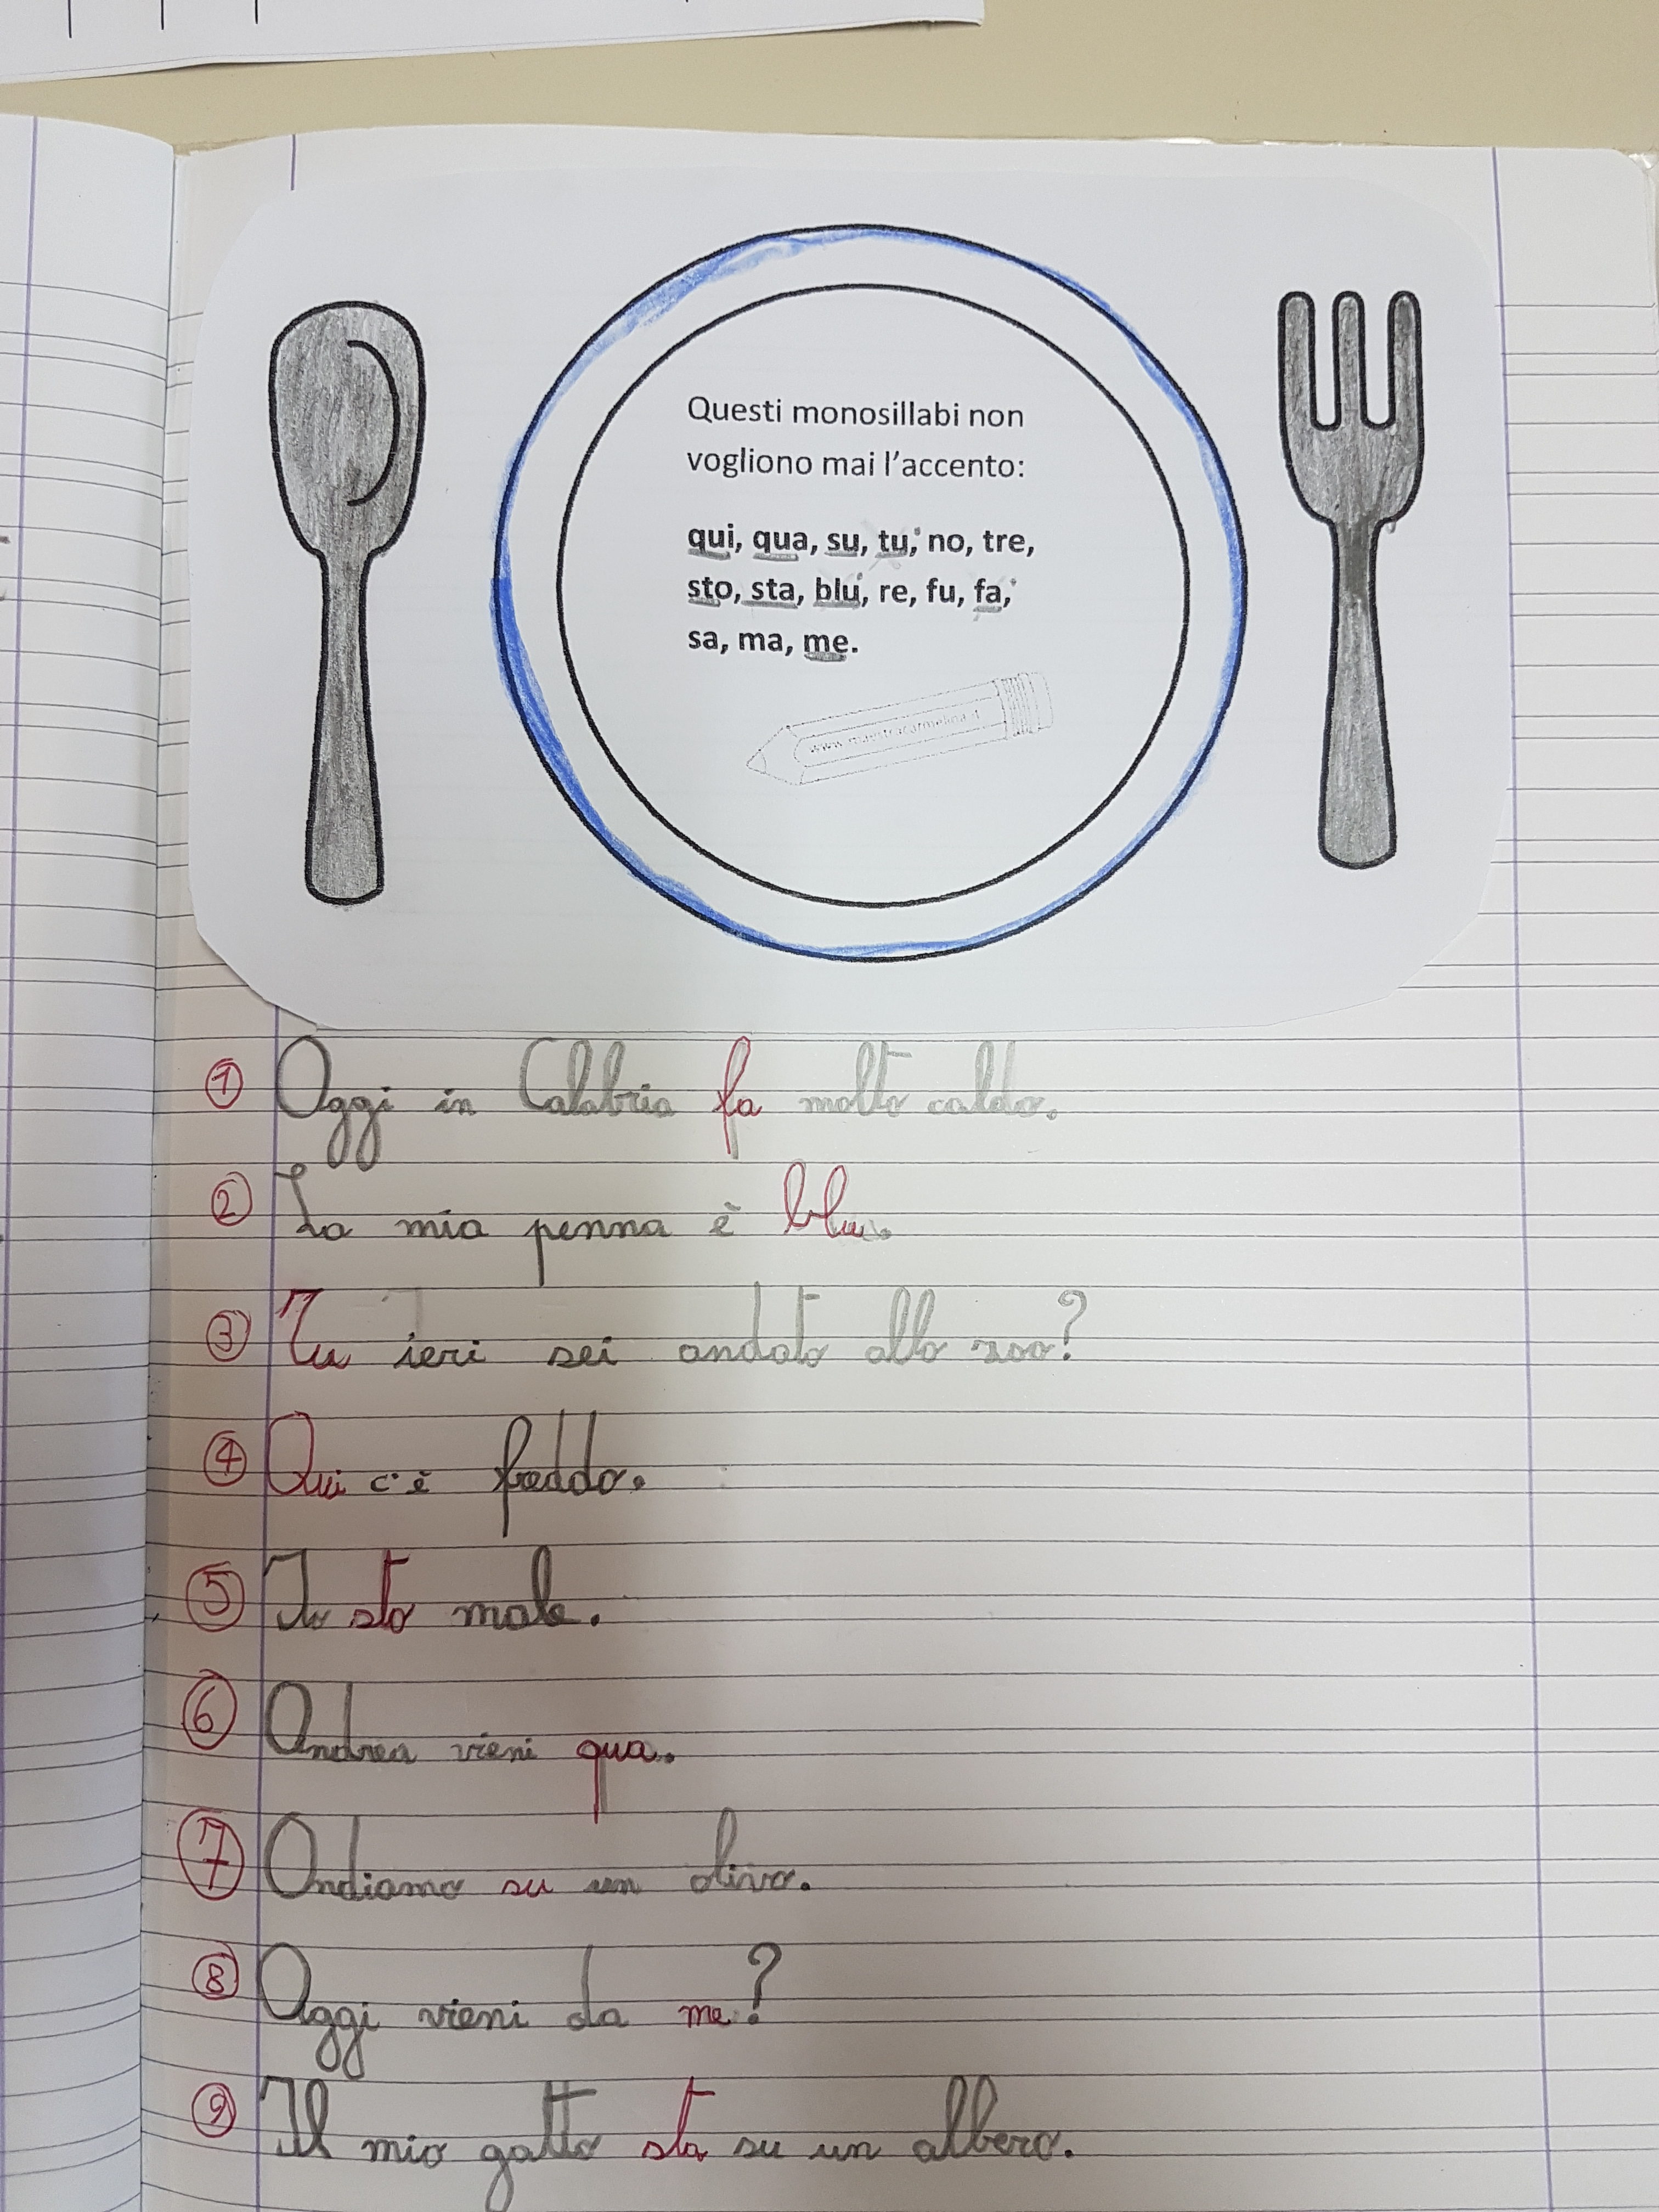 Questi monosillabi non
vogliono mai l'accento:
qui, qua, su, tu, no, tre,
sto, sta, blu, re, fu, fa,
sa, ma, me.
www.maestracarmelina.it
① Oggi in Calabria fa molto caldo.
② La mia penna è blu.
③ Tu ieri sei andato allo zoo?
④ Qui c'è freddo.
⑤ Io sto male.
⑥ Andrea vieni qua.
⑦ Andiamo su un olivo.
⑧ Oggi vieni da me?
⑨ Il mio gatto sta su un albero.